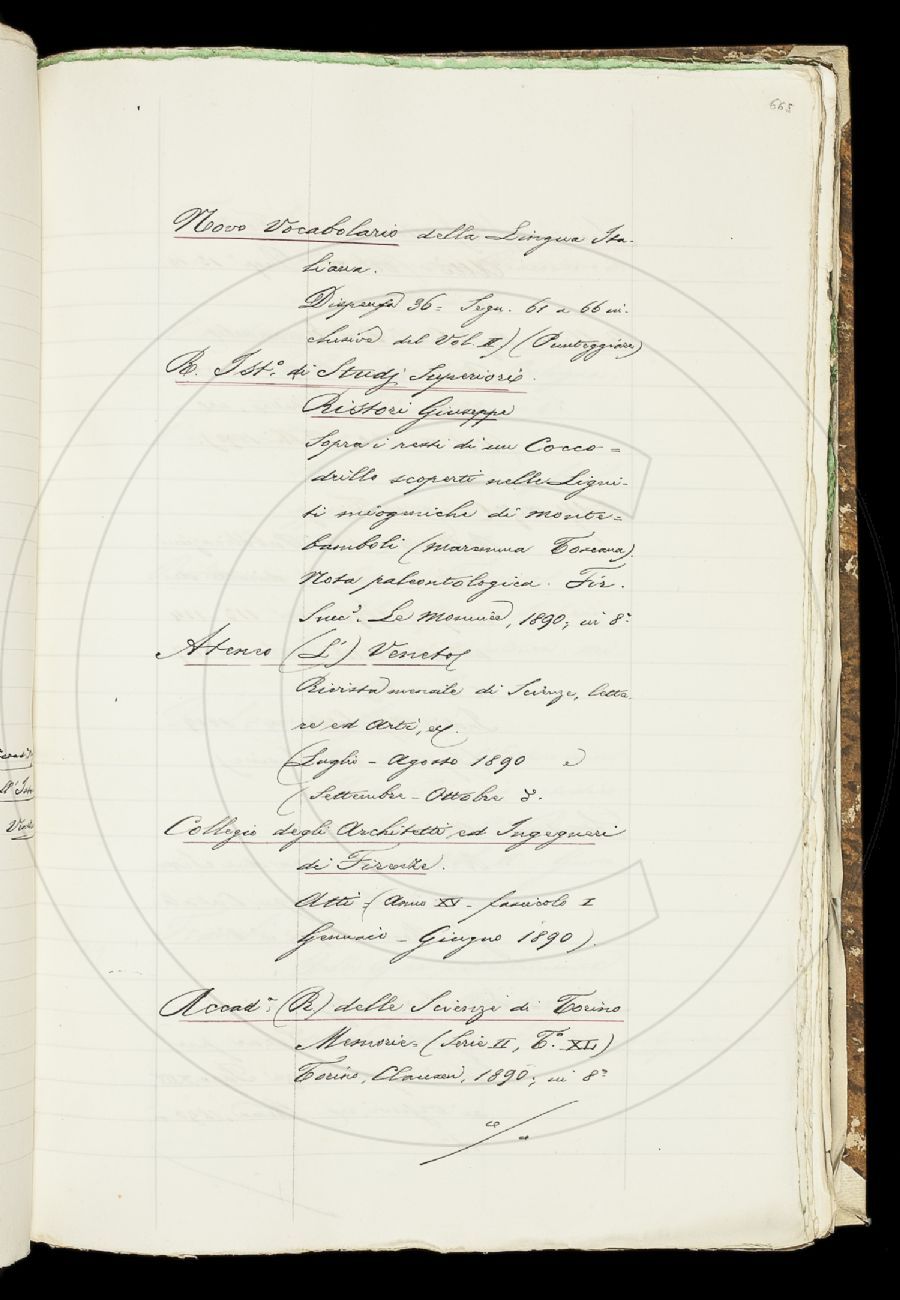 668
Novo Vocabolario della Lingua Ita-
liana.
Dispensa 36= Segn. 61 a 66 in-
clusive del Vol. II) (Punteggiare)
R. Ist.º di Studj Superiori.
Ristori Giuseppe
Sopra i resti di un Cocco=
drillo scoperti nelle Ligni-
ti miogeniche di Monte=
bamboli (Maremma Toscana).
Nota paleontologica. Fir.
Succ.i Le Monnier, 1890; in 8º
Ateneo (L') Veneto
Rivista mensile di Scienze, lette-
re ed Arti, ec.
(Luglio - Agosto 1890 e
(Settembre - Ottobre
Collegio degli Architetti ed Ingegneri
di Firenze.
Atti = (Anno XV - fascicolo I
Gennaio - Giugno 1890).
Accad.ª (R) delle Scienze di Torino
Memorie= (Serie II, T.º XL)
Torino, Clausen, 1890; in 8º